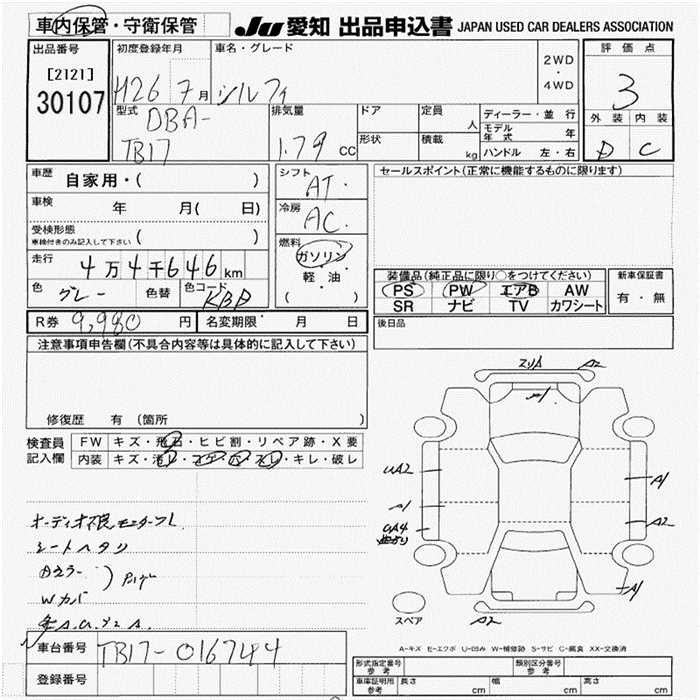 車内保管・守衛保管
JU 愛知 出品申込書 JAPAN USED CAR DEALERS ASSOCIATION
出品番号 初度登録年月 車名・グレード 2WD・4WD 評価点
[2121]
30107 H26 7月 シルフィ 3
型式 DBA-TB17 排気量 1.79 CC ドア 定員 人 ディーラー・並行
形状 積載 kg モデル年式 年
ハンドル 左・右
外装 内装
D C
車歴 自家用・( ) シフト AT. セールスポイント(正常に機能するものに限ります)
車検 年 月( 日) 冷房 AC.
受検形態 車検付きのみ記入して下さい ( ) 燃料 ガソリン・軽・油・( )
走行 4万4千646km
色 グレー 色替 色コード KBD
装備品(純正品に限り○をつけてください) 新車保証書
PS PW エアB AW 有・無
SR ナビ TV カワシート
R券 9,980円 名変期限 月 日 後日品
注意事項申告欄(不具合内容等は具体的に記入して下さい)
修復歴 有 (箇所 )
検査員記入欄 FW キズ・飛石・ヒビ割・リペア跡・X要
内装 キズ・汚レ・コゲ・穴・スレ・キレ・破レ
オーディオ不良
シートヘタリ
Wカバ
A2
UA2
A1
UA4
A2
A1
A2
スペア
A-キズ E-エクボ U-凹み W-補修跡 S-サビ C-腐食 XX-交換済
車台番号 TB17-016744
登録番号
形式指定番号 参考 類別区分番号 参考
車庫証明用 参考 長さ cm 幅 cm 高さ cm